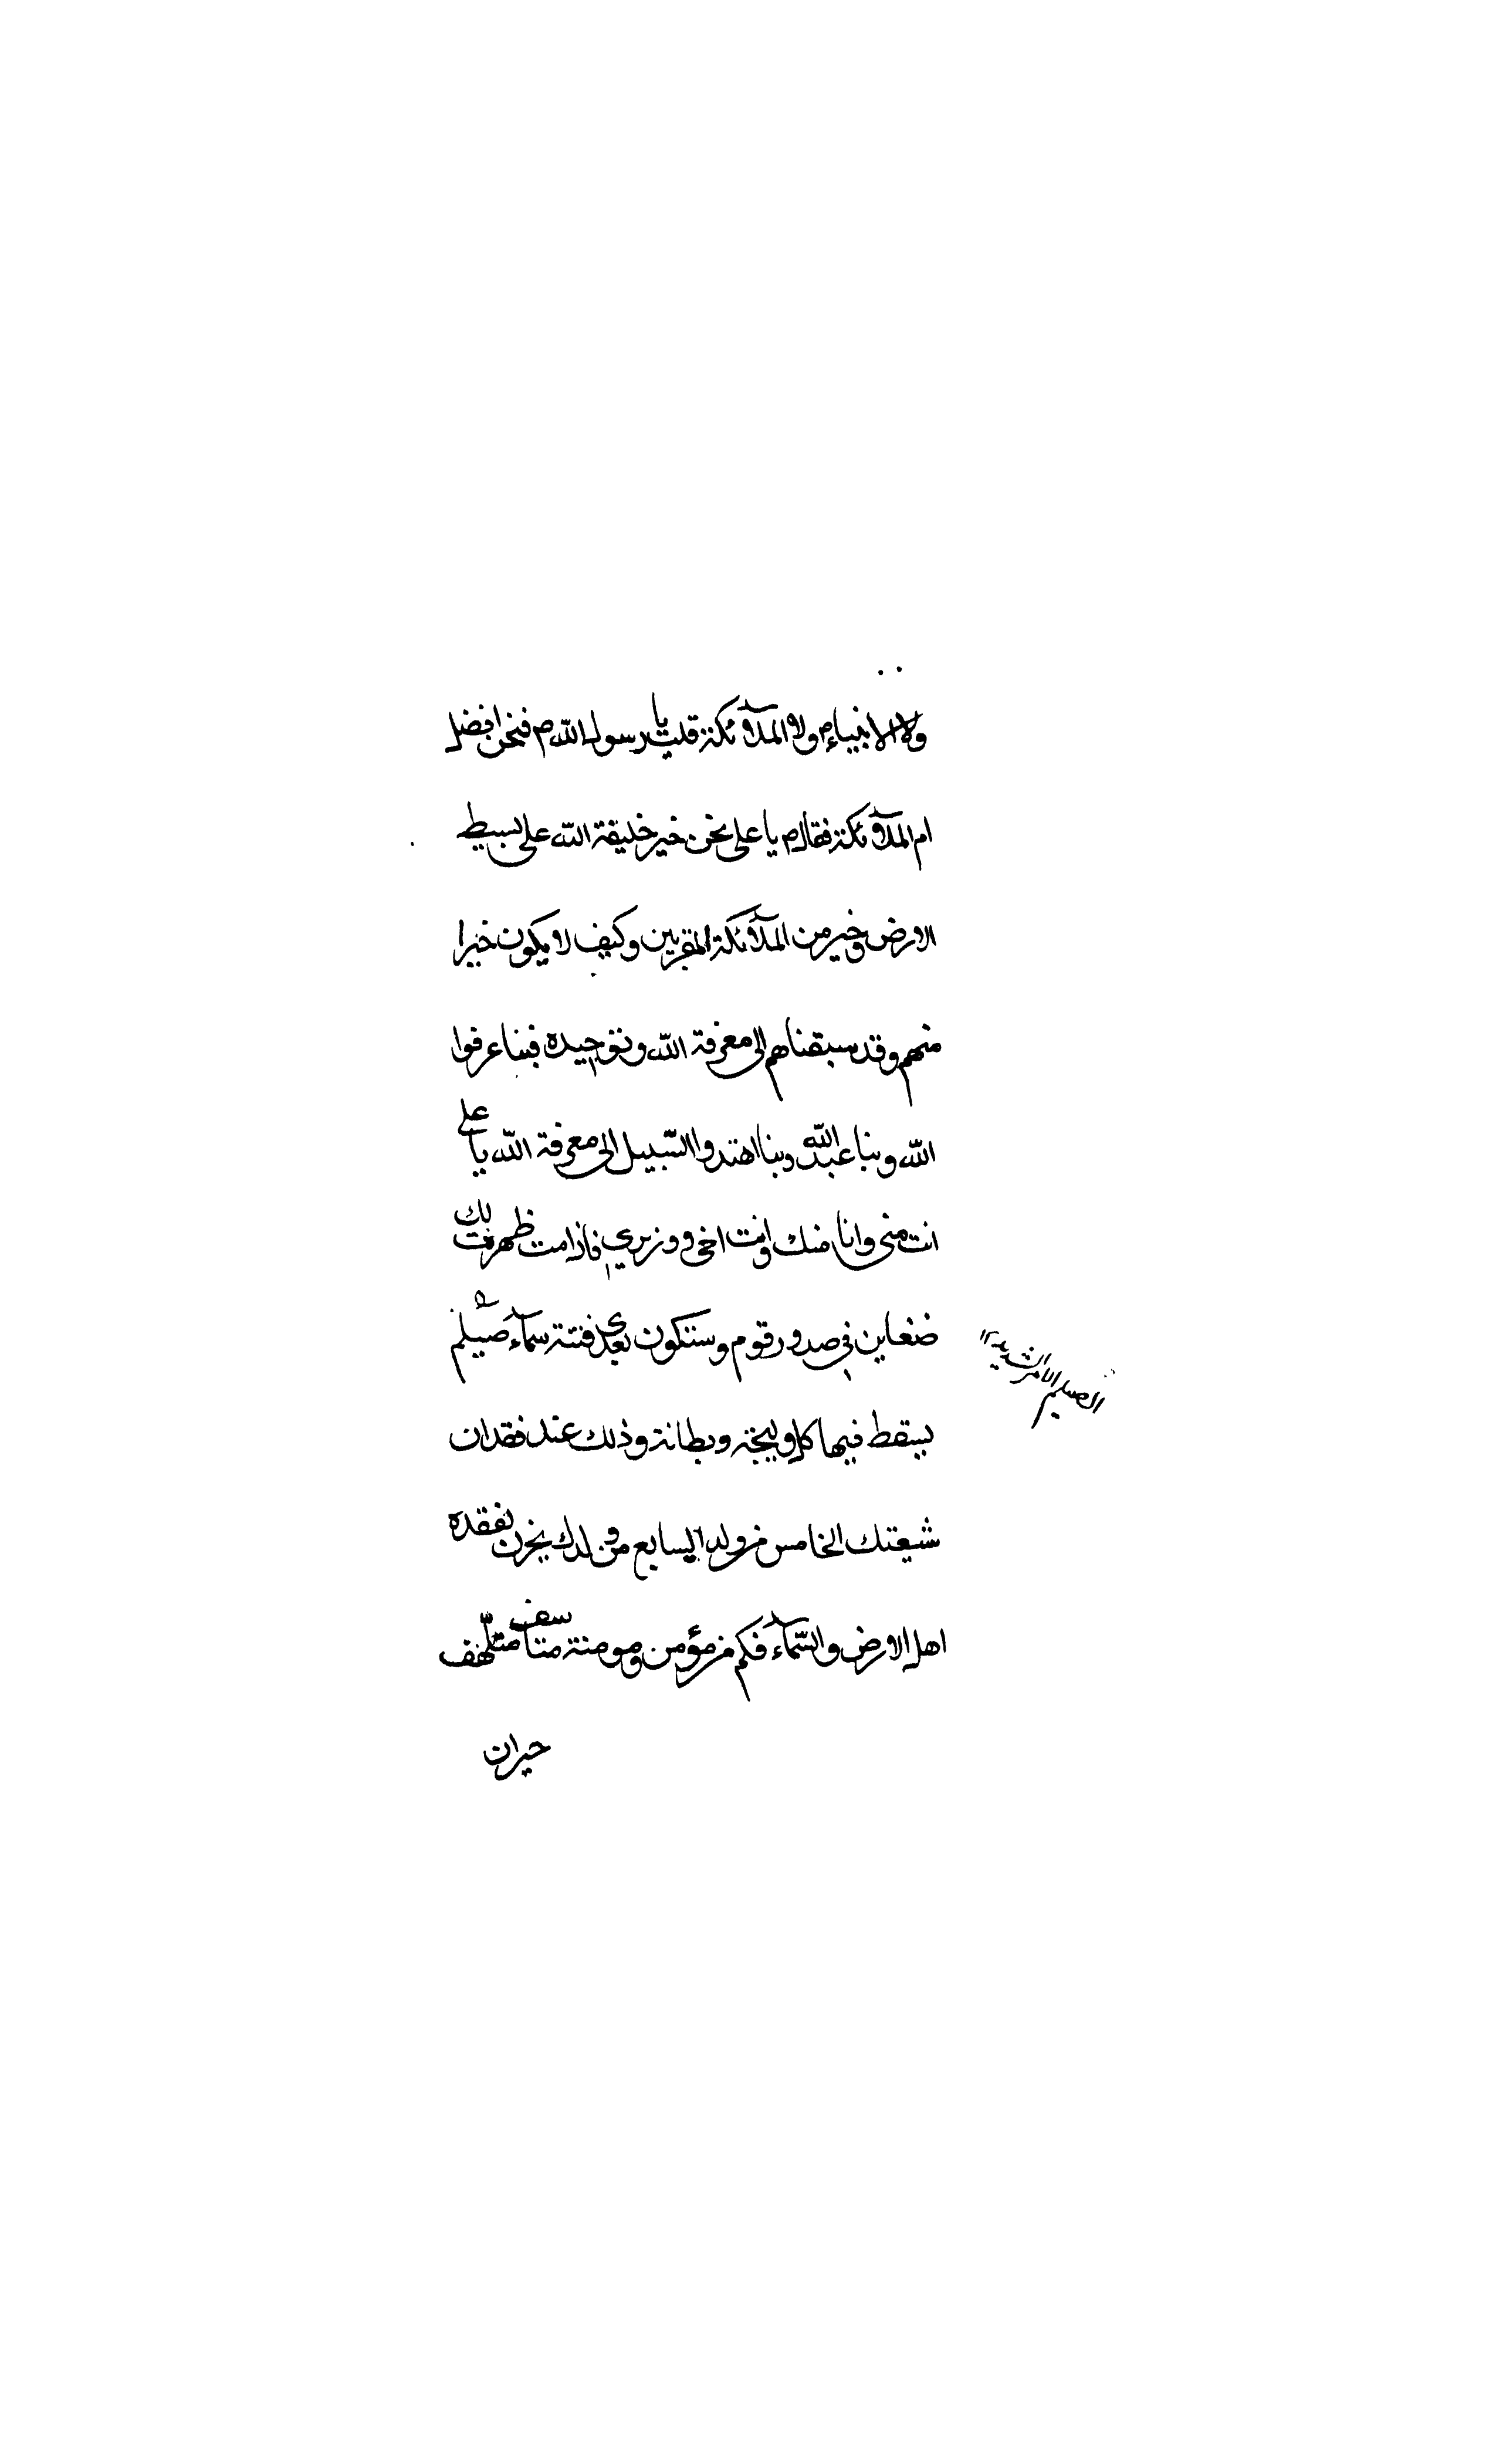 ولا الانبياء ولا الملآئكة قلت يا رسول الله ص فنحن افضل
ام الملآئكة فقال ص يا على نحن خير خليقة الله على بسيط
الارض وخير من الملآئكة المقربين وكيف لا يكون خيرا
منهم وقد سبقناهم الى معرفة الله وتوحيده فبنا عرفوا
الله وبنا عبد الله وبنا اهتدوا السّبيل الى معرفة الله يا على
انت منى وانا منك وانت اخى ووزيري فاذا مت ظهرت لك
ضغاين في صدور قوم وستكون بعدى فتنة سمآء صيلم
الصيلم الامر الشديد ١٢
يسقط فيها كل وليجة وبطانة وذلك عند فقدان
شيعتك الخامس من ولد السابع من ولدك يحزن لفقده
اهل الارض والسّمآء فكم من مؤمن ومومنة متاسف متلهّف
حيران